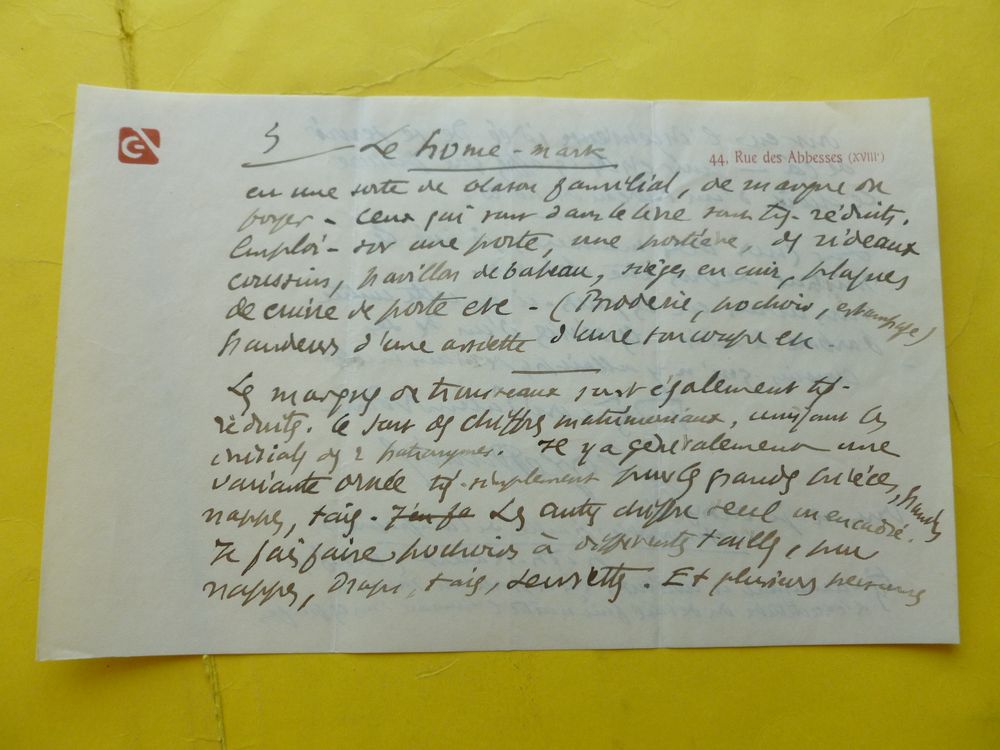 5 Le home-mark
44, Rue des Abbesses (XVIIIe)
est une sorte de blason familial, de marque de
foyer - ceux qui sont dans le livre sont très réduits.
Emploi - sur une porte, une portière, des rideaux
coussins, pavillon de bateau, sièges en cuir, plaques
de cuivre de porte etc - (Broderie, pochoir, estampage)
grandeurs d'une assiette d'une soucoupe etc -
Les marques de trousseaux sont également très
réduites. Ce sont des chiffres matrimoniaux, unissant les
initiales des 2 patronymes. Il y a généralement une
variante ornée très simplement pour les grandes pièces, grandes
nappes, taies - J'en fa Les autres chiffre seul ou encadré.
Je fais faire pochoirs à différentes tailles, pour
nappes, Draps, taies, serviettes. Et plusieurs personnes